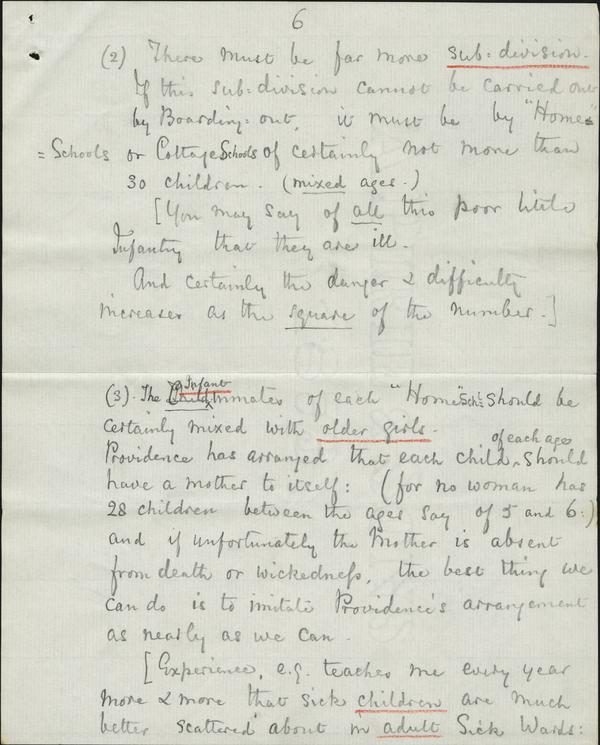 6
(2) There must be far more sub=division.
If this sub=division cannot be carried out
by Boarding=out, it must be by "Home"
=Schools or Cottage Schools of certainly not more than
30 children. (mixed ages.)
[You may say of all this poor little
Infantry that they are ill.
And certainly the danger & difficulty
increases as the square of the number.]
(3). The Child Infant Inmates of each "Home" Schl: should be
certainly mixed with older girls.
Providence has arranged that each child of each age should
have a mother to itself: (for no woman has
28 children between the ages say of 5 and 6:)
and if unfortunately the Mother is absent
from death or wickedness, the best thing we
can do is to imitate Providence's arrangement
as nearly as we can.
[Experience, e.g. teaches me every year
more & more that sick children are much
better scattered about in adult Sick Wards: